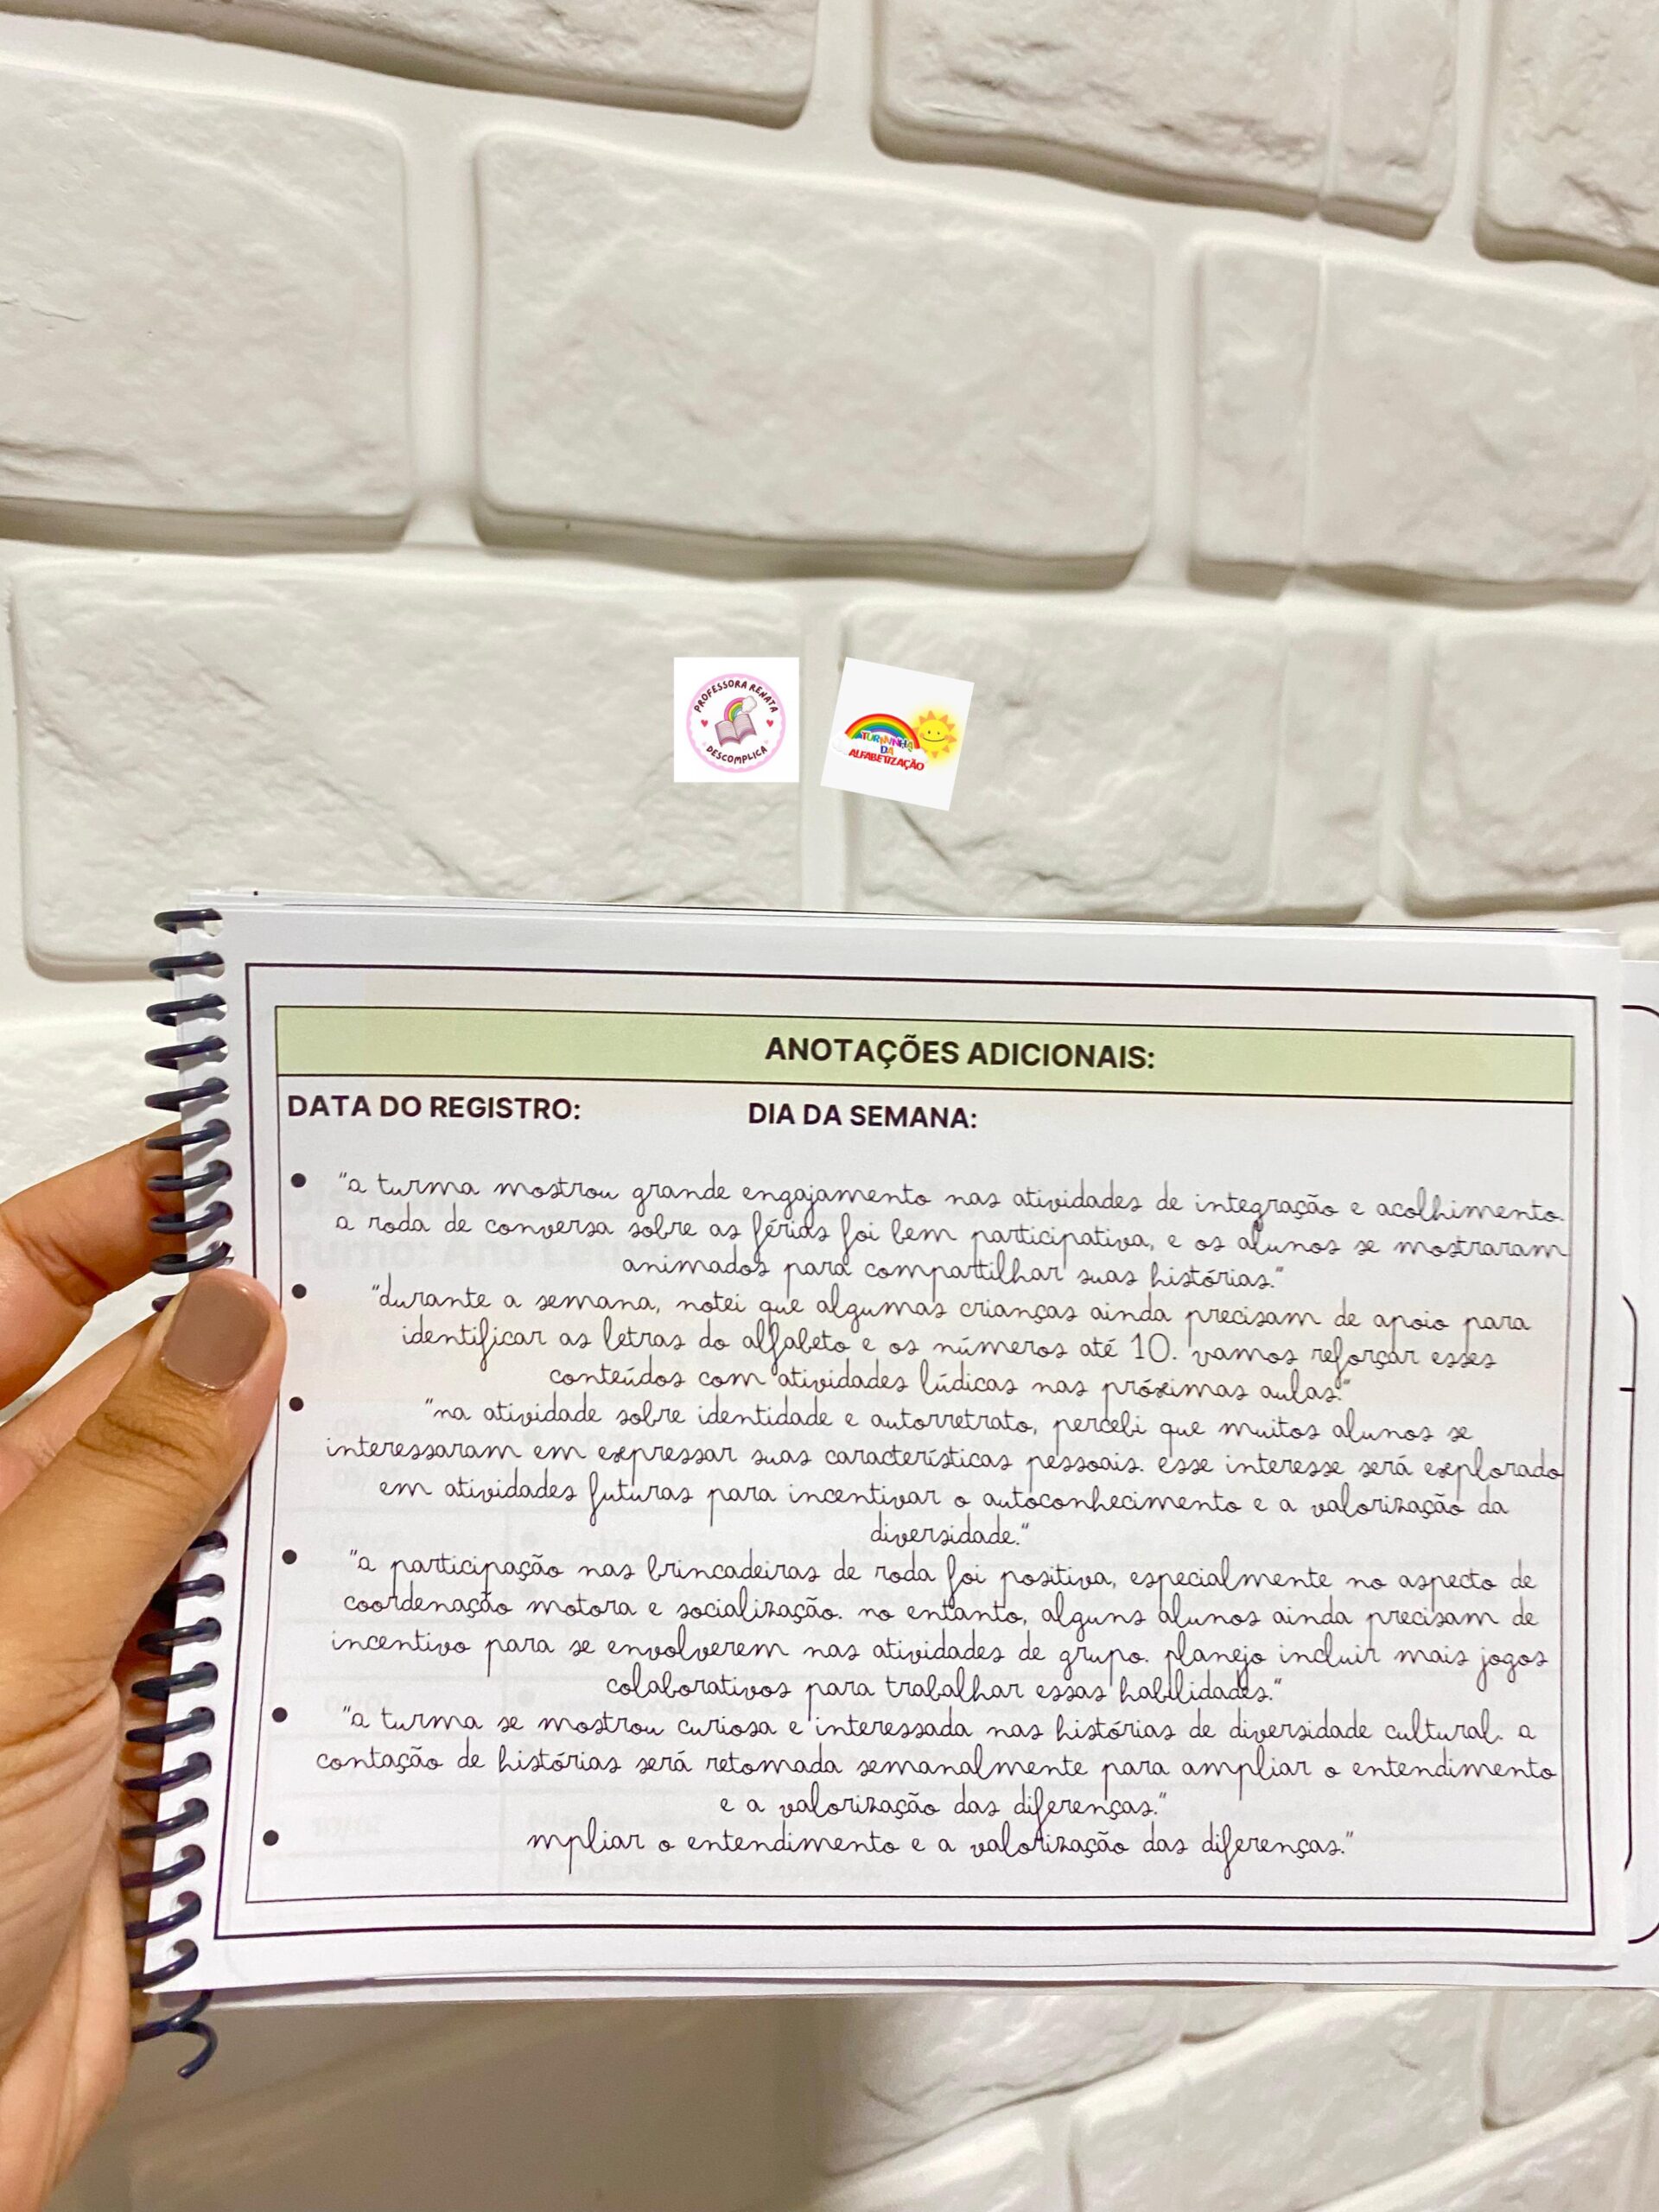 PROFESSORA RENATA
DESCOMPLICA
TURMINHA
DA
ALFABETIZAÇÃO
ANOTAÇÕES ADICIONAIS:
DATA DO REGISTRO: DIA DA SEMANA:
• "a turma mostrou grande engajamento nas atividades de integração e acolhimento.
a roda de conversa sobre as férias foi bem participativa, e os alunos se mostraram
animados para compartilhar suas histórias."
• "durante a semana, notei que algumas crianças ainda precisam de apoio para
identificar as letras do alfabeto e os números até 10. vamos reforçar esses
conteúdos com atividades lúdicas nas próximas aulas."
• "na atividade sobre identidade e autorretrato, percebi que muitos alunos se
interessaram em expressar suas características pessoais. esse interesse será explorado
em atividades futuras para incentivar o autoconhecimento e a valorização da
diversidade."
• "a participação nas brincadeiras de roda foi positiva, especialmente no aspecto de
coordenação motora e socialização. no entanto, alguns alunos ainda precisam de
incentivo para se envolverem nas atividades de grupo. planejo incluir mais jogos
colaborativos para trabalhar essas habilidades."
• "a turma se mostrou curiosa e interessada nas histórias de diversidade cultural. a
contação de histórias será retomada semanalmente para ampliar o entendimento
e a valorização das diferenças."
• mpliar o entendimento e a valorização das diferenças."